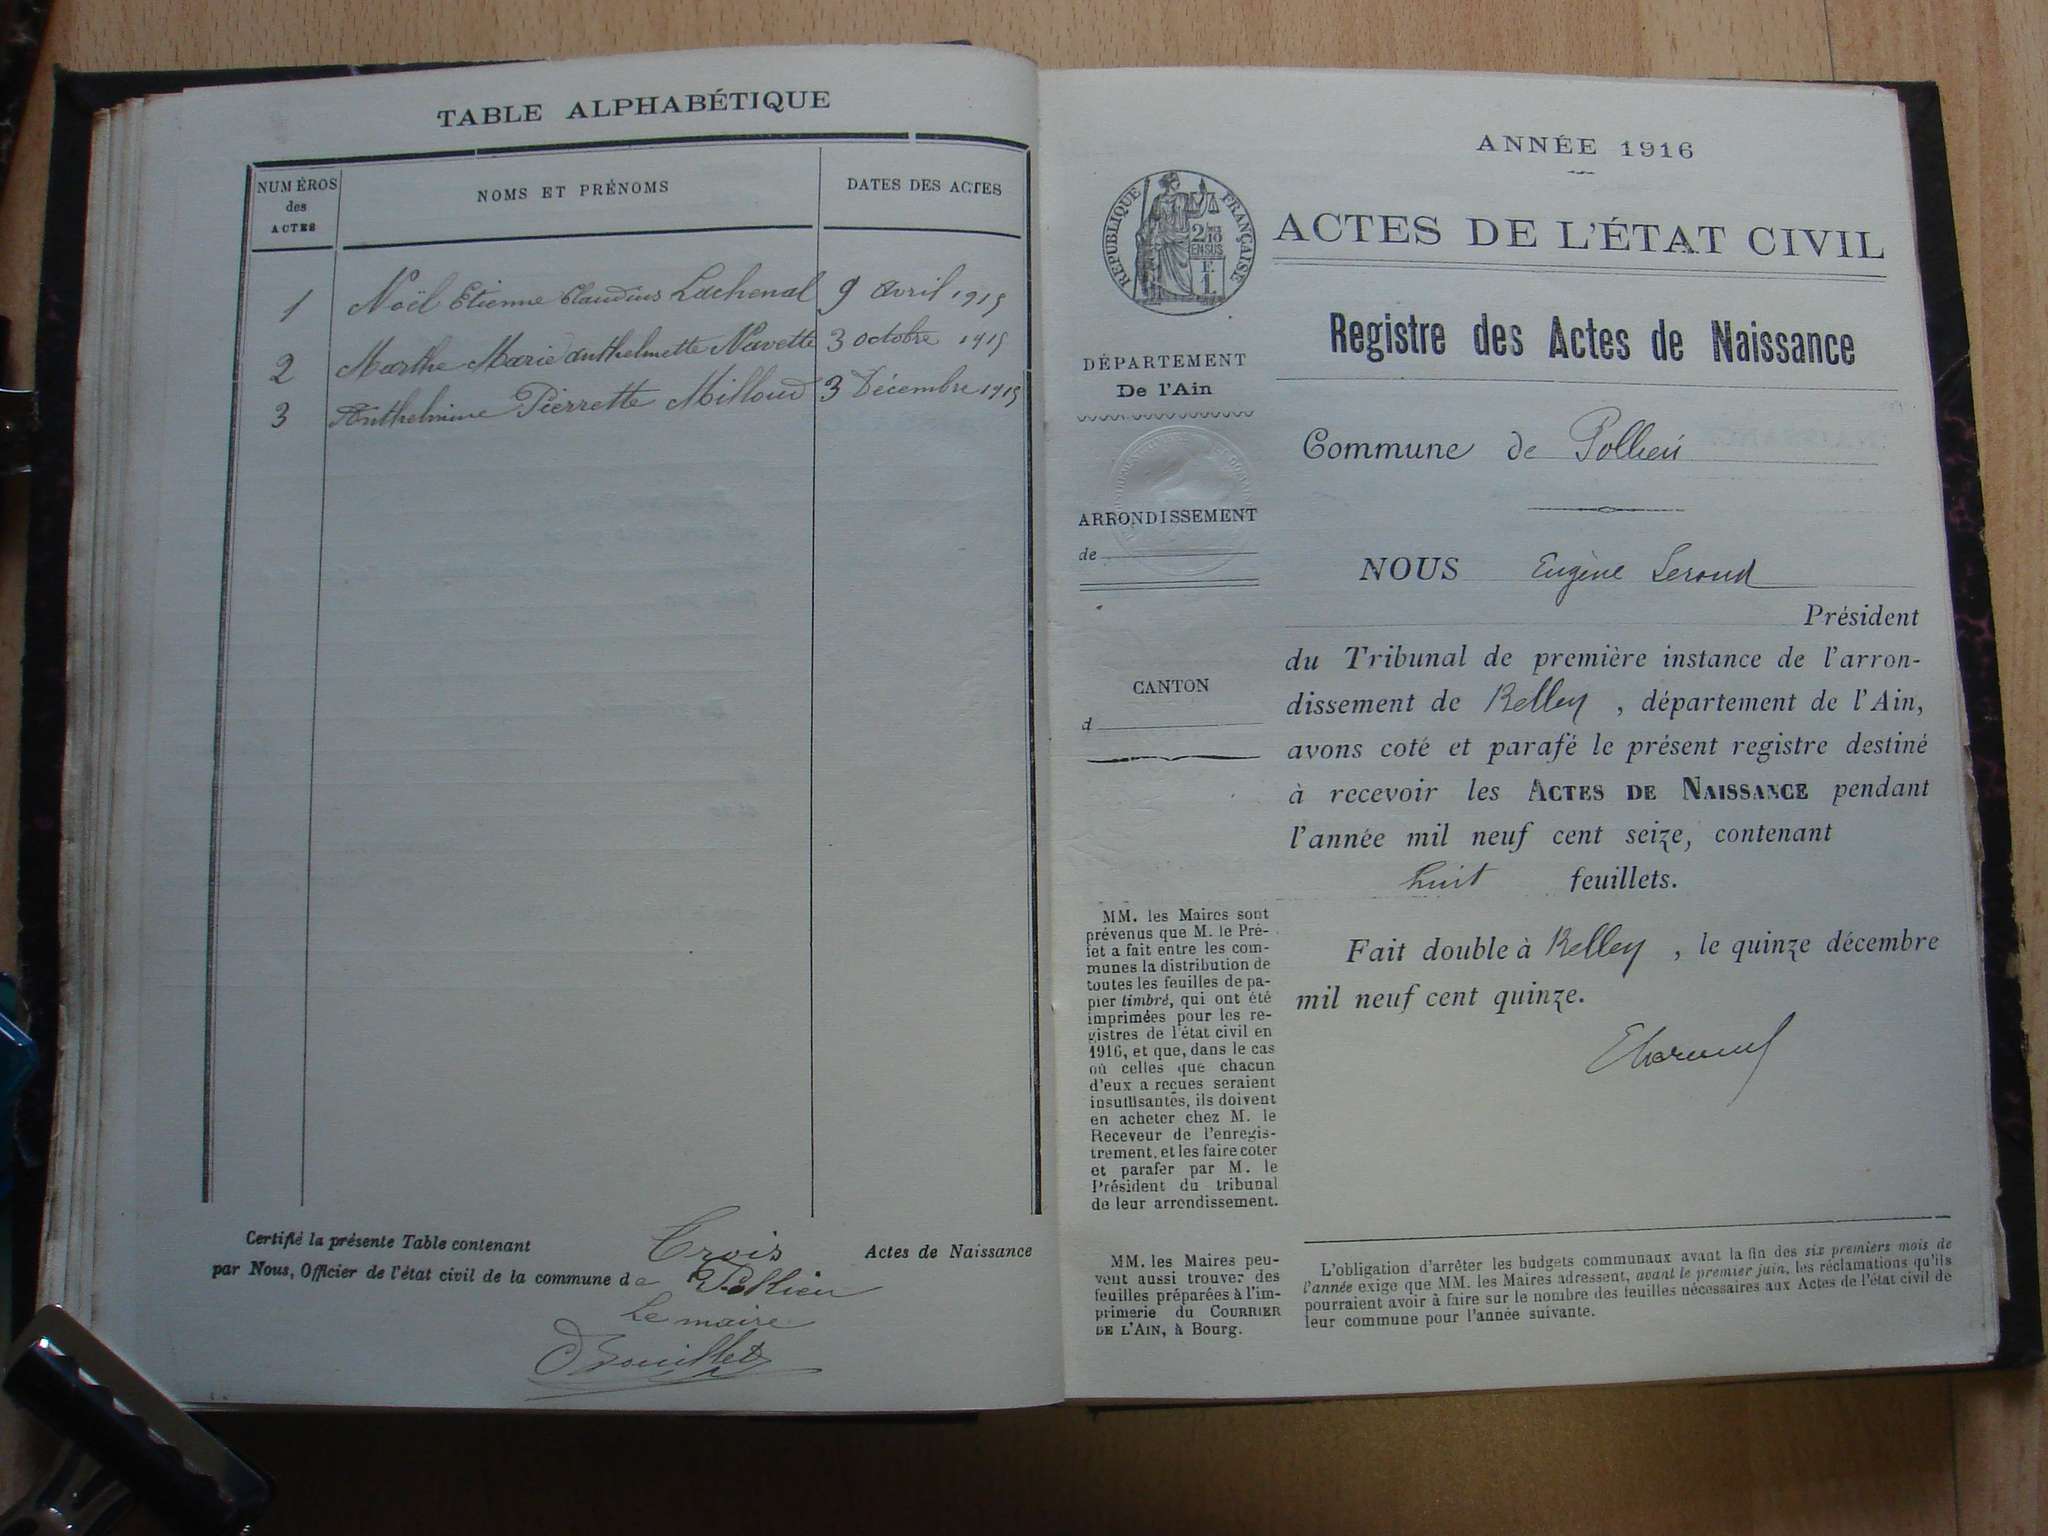 TABLE ALPHABÉTIQUE
NUMÉROS
des
ACTES
NOMS ET PRÉNOMS
DATES DES ACTES
1 Noël Etienne Claudius Lachenal 9 avril 1915
2 Marthe Marie Anthelmette Navette 3 octobre 1915
3 Anthelmine Pierrette Milloud 3 Décembre 1915
Certifié la présente Table contenant Trois Actes de Naissance
par Nous, Officier de l'état civil de la commune de Pollieu
Le maire
ANNÉE 1916
RÉPUBLIQUE FRANÇAISE
ACTES DE L'ÉTAT CIVIL
Registre des Actes de Naissance
DÉPARTEMENT
De l'Ain
Commune de Pollieu
ARRONDISSEMENT
de
NOUS Eugène
Président
du Tribunal de première instance de l'arron-
CANTON
d
dissement de Belley, département de l'Ain,
avons coté et parafé le présent registre destiné
à recevoir les ACTES DE NAISSANCE pendant
l'année mil neuf cent seize, contenant
huit feuillets.
Fait double à Belley, le quinze décembre
mil neuf cent quinze.
MM. les Maires sont
prévenus que M. le Pré-
fet a fait entre les com-
munes la distribution de
toutes les feuilles de pa-
pier timbré, qui ont été
imprimées pour les re-
gistres de l'état civil en
1916, et que, dans le cas
où celles que chacun
d'eux a reçues seraient
insuffisantes, ils doivent
en acheter chez M. le
Receveur de l'enregis-
trement, et les faire coter
et parafer par M. le
Président du tribunal
de leur arrondissement.
MM. les Maires peu-
vent aussi trouver des
feuilles préparées à l'im-
primerie du COURRIER
DE L'AIN, à Bourg.
L'obligation d'arrêter les budgets communaux avant la fin des six premiers mois de
l'année exige que MM. les Maires adressent, avant le premier juin, les réclamations qu'ils
pourraient avoir à faire sur le nombre des feuilles nécessaires aux Actes de l'état civil de
leur commune pour l'année suivante.